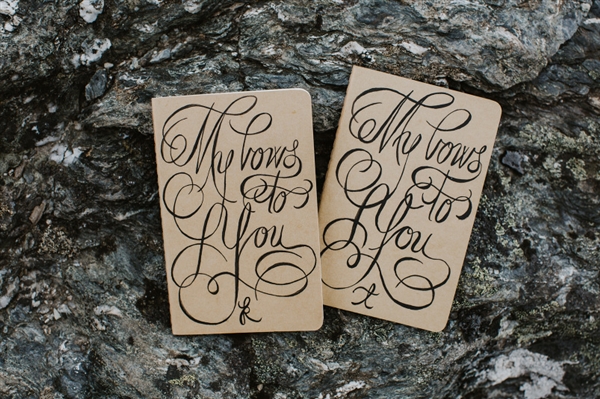 My vows
to
You
My vows
to
You